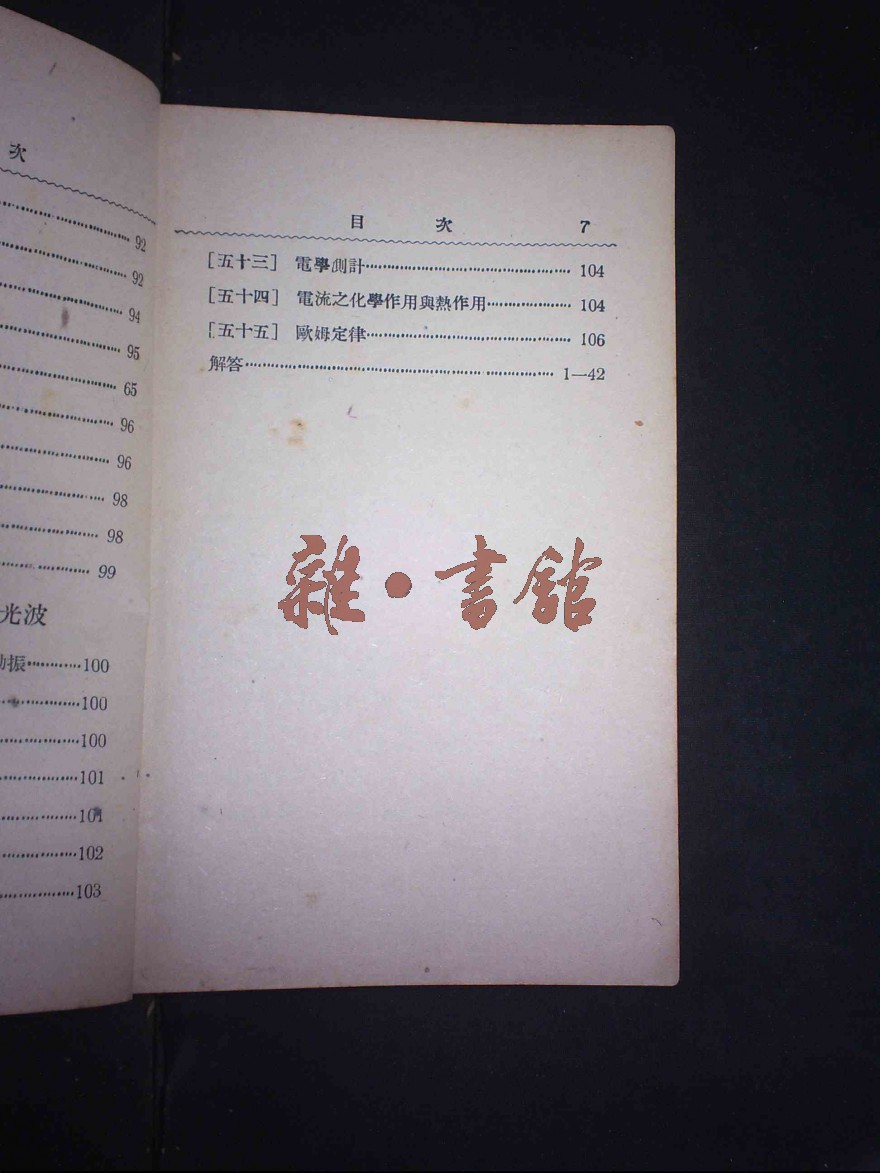 次
92
92
94
95
65
96
96
98
98
99
光波
振…………100
100
100
101
101
102
103
目 次 7
[五十三] 電學測計…………………………………… 104
[五十四] 電流之化學作用與熱作用……………… 104
[五十五] 歐姆定律…………………………………… 106
解答……………………………………………………… 1—42
雜·書館